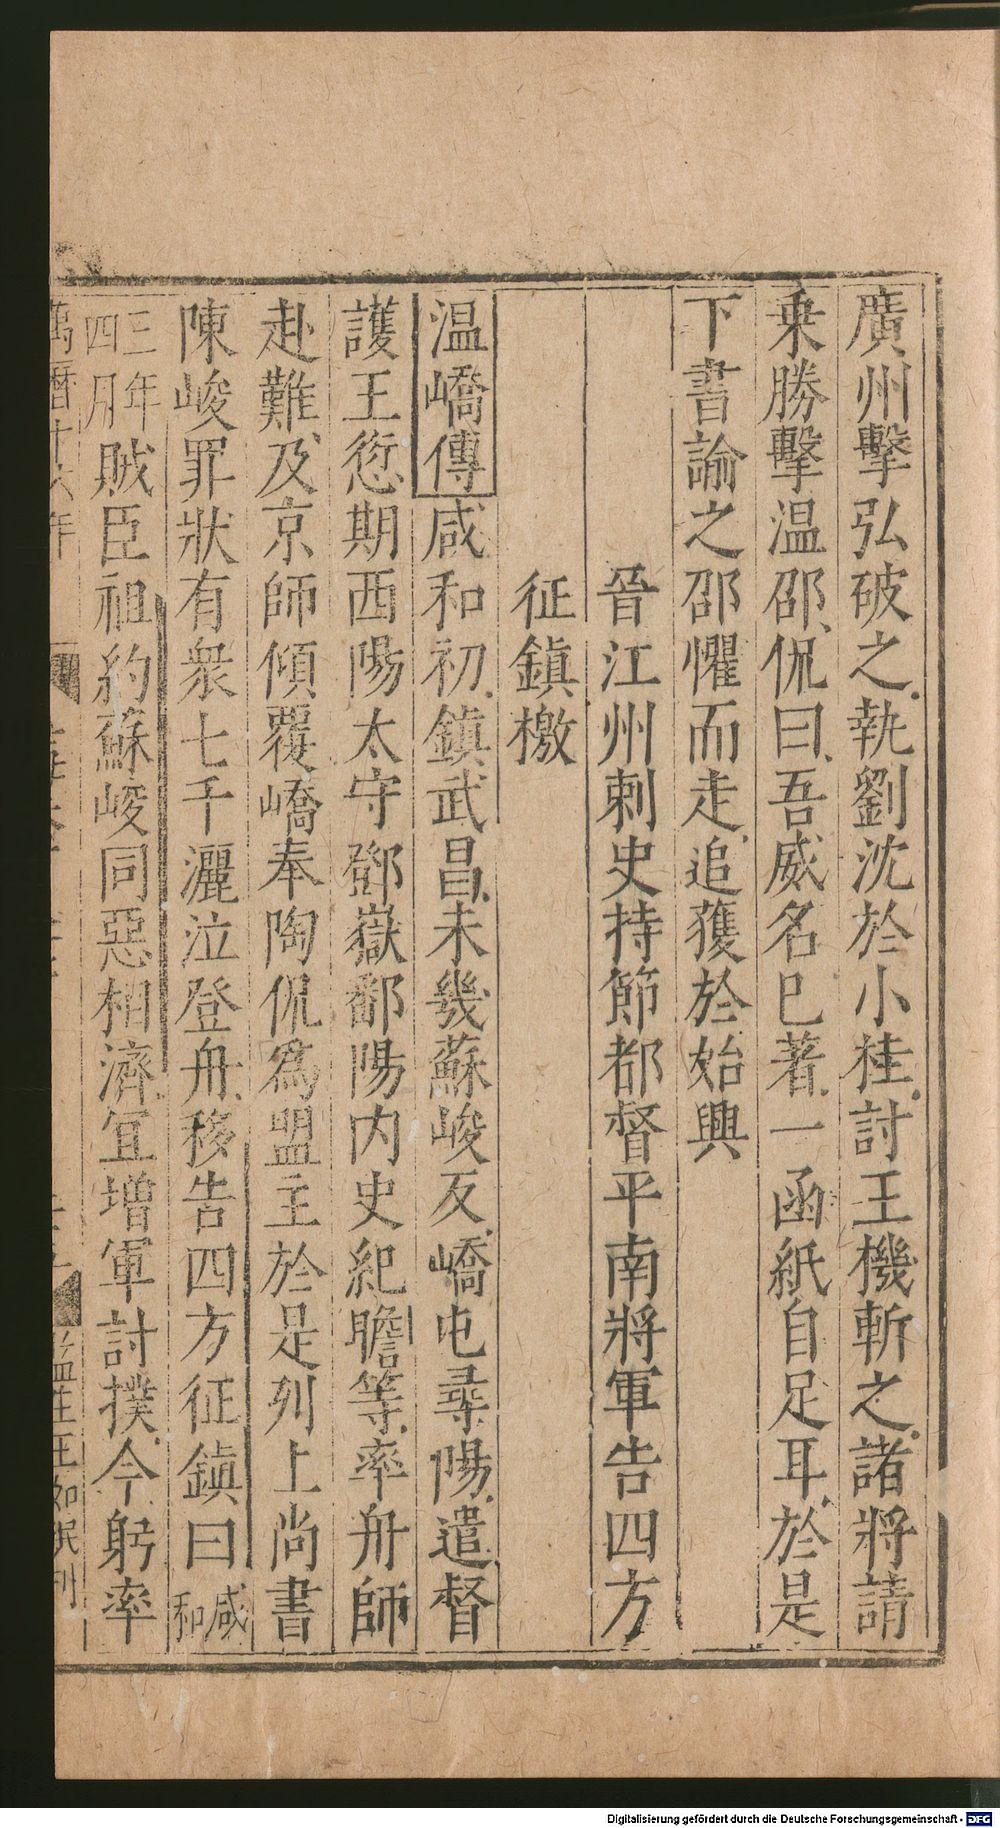 廣州擊弘破之執劉沈於小桂討王機斬之諸將請
乗勝擊温邵侃曰吾威名巳著一函紙自足耳於是
下書諭之邵懼而走追獲於始興
晉江州刺史持節都督平南將軍告四方
征鎮檄
温嶠傳咸和初鎮武昌未幾蘇峻反嶠屯尋陽遣督
護王愆期西陽太守鄧嶽鄱陽内史紀瞻等率舟師
赴難及京師傾覆嶠奉陶侃為盟主於是列上尚書
陳峻罪狀有衆七千灑泣登舟移告四方征鎮曰咸和
三年四月賊臣祖約蘇峻同惡相濟宜增軍討撲今躬率
萬曆十六年
監生王如珉刊
Digitalisierung gefördert durch die Deutsche Forschungsgemeinschaft - DFG